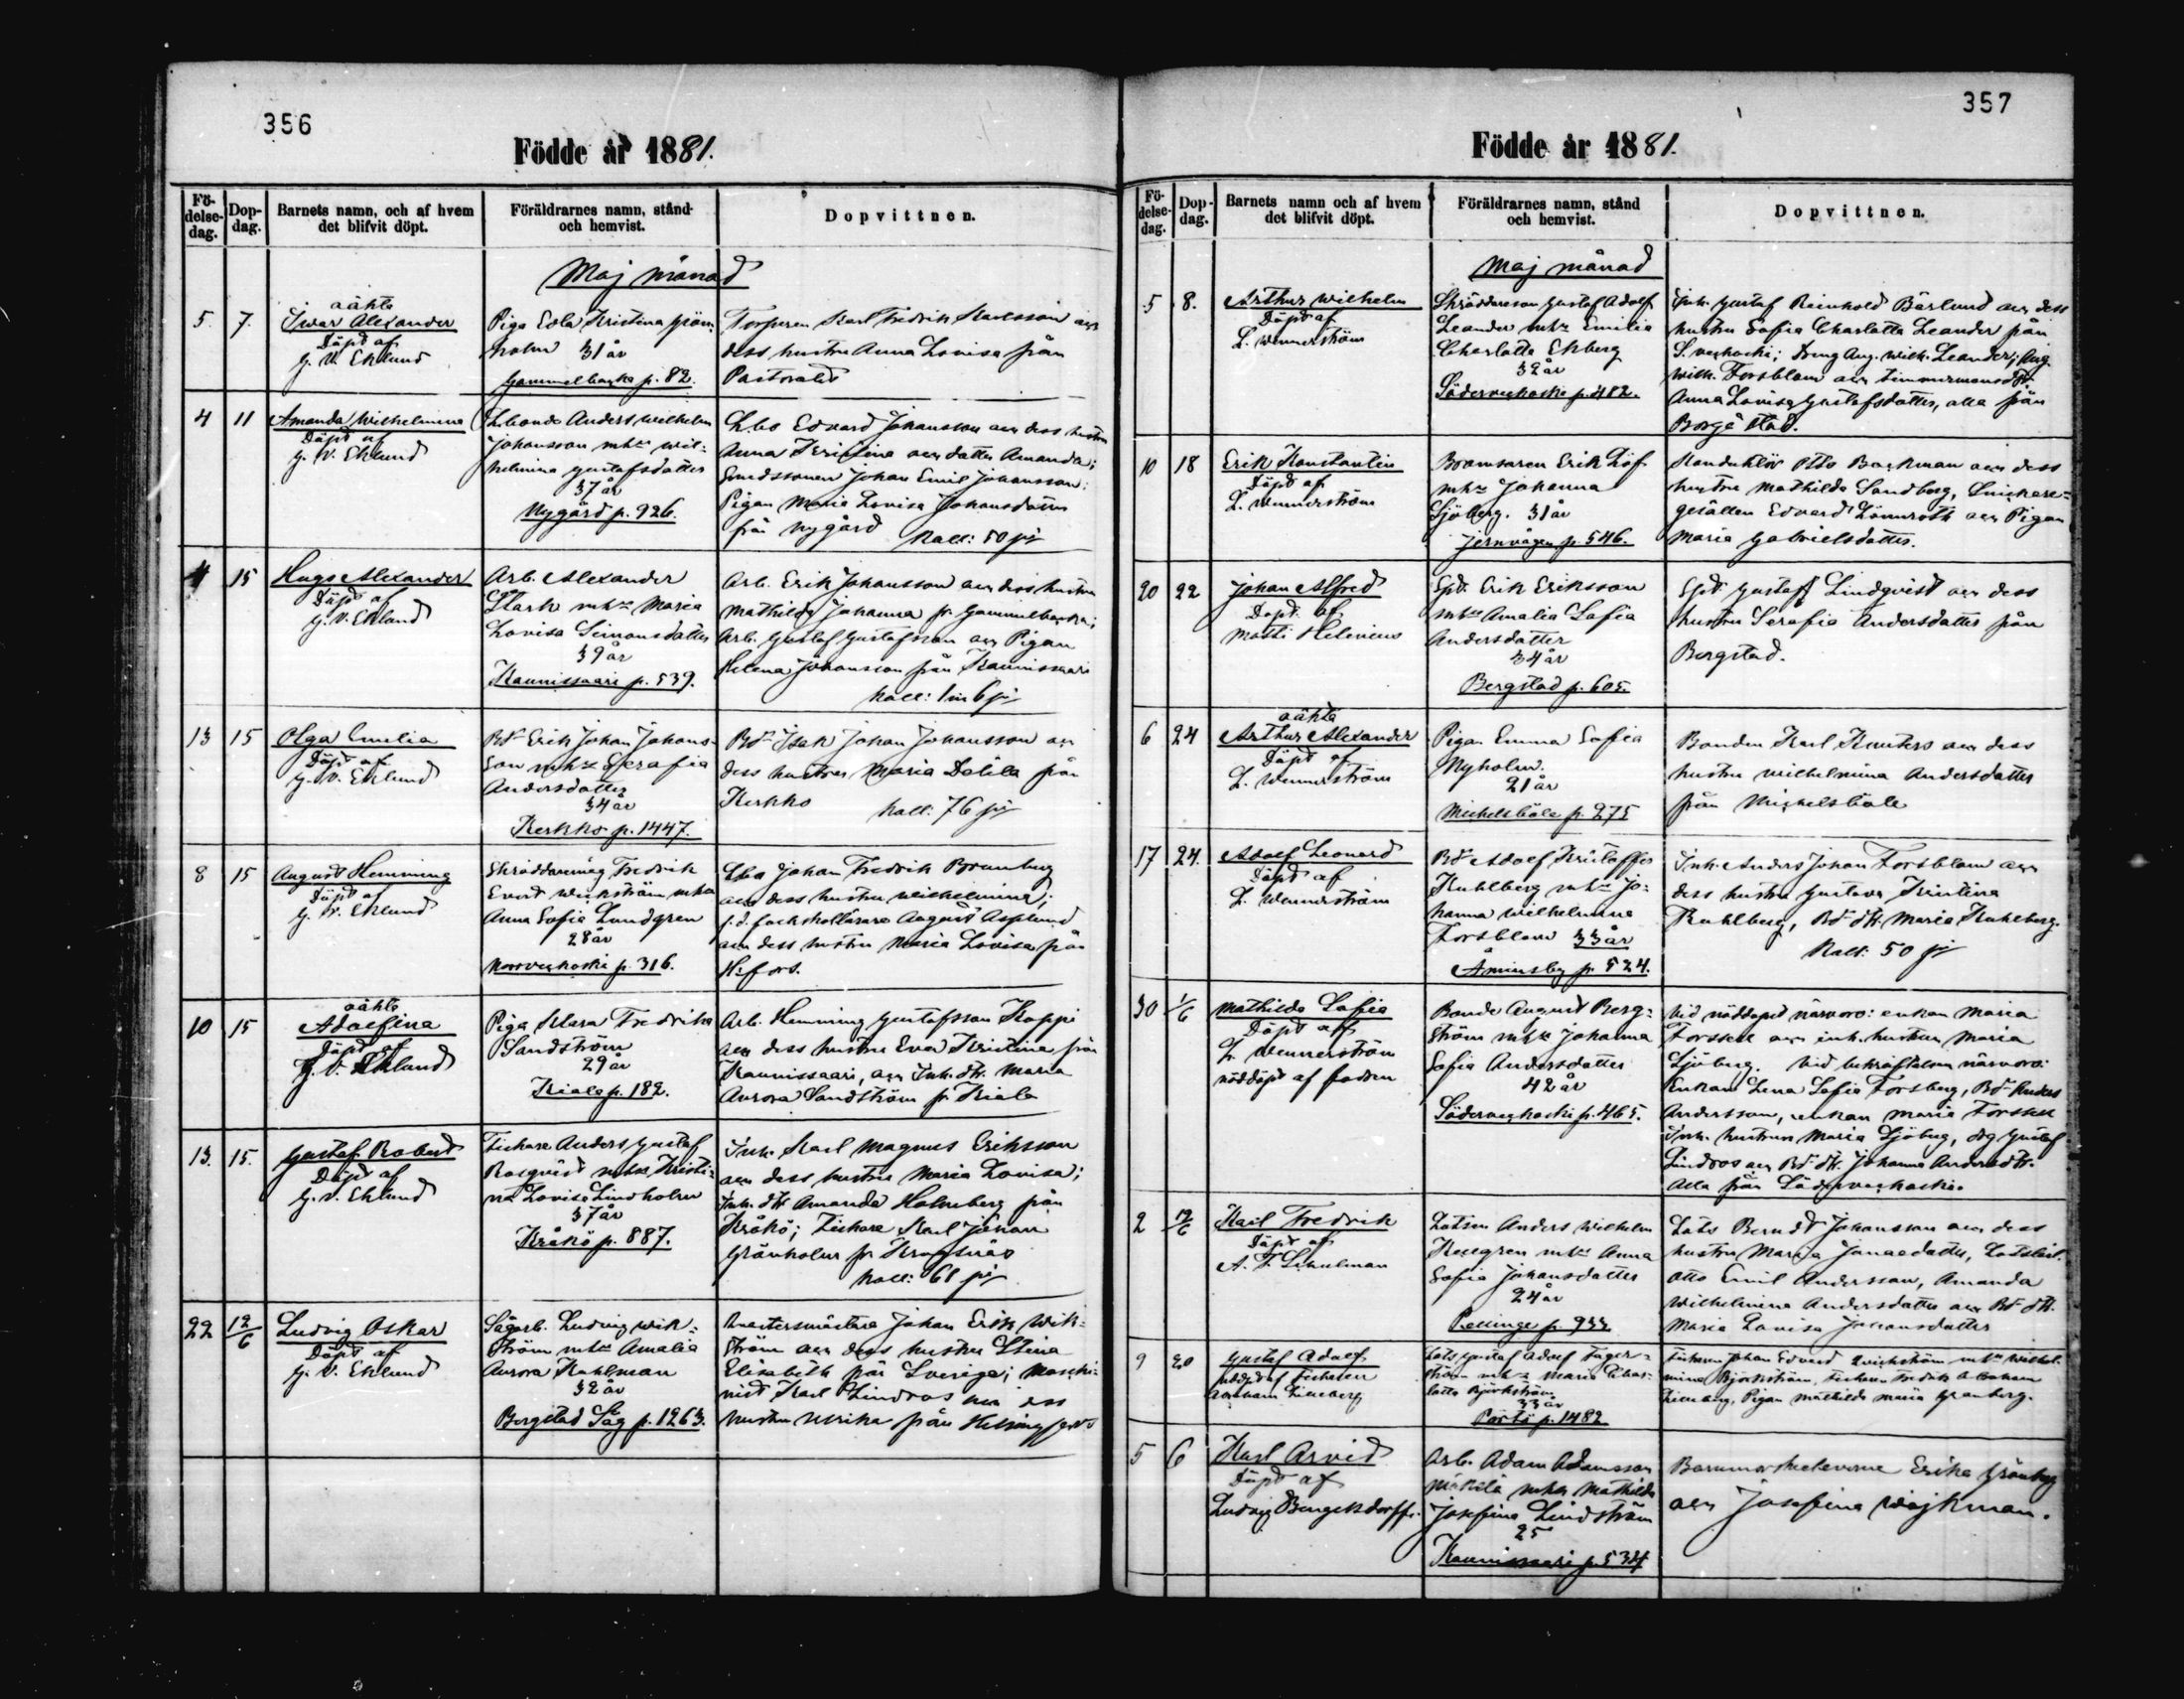 356
Födde år 1881.
Födelsedag.
Dopdag.
Barnets namn, och af hvem det blifvit döpt.
Föräldrarnes namn, stånd och hemvist.
Dopvittnen.
Maj månad
5. 7.
oäkta
Iwar Alexander
Döpt af
G. V. Eklund
Piga Eva Kristina Grön-
holm 31 år
Gammelbacka p. 82.
Torparen Karl Fredrik Karlsson och
dess hustru Anna Lovisa från
4 11
Amanda Wilhelmina
Döpt af
G. V. Eklund
Anders Wilhelm
Johansson m. h. Wil-
helmina Gustafsdotter
37 år
Nygård p. 926.
Edvard Johansson och dess hustru
Anna Kristina och dotter Amanda;
Johan Emil Johansson;
Pigan Maria Lovisa Johansdotter
från Nygård
Koll: 50 pi
4 15
Hugo Alexander
Döpt af
G. V. Eklund
Arb. Alexander
Stark m. h. Maria
Lovisa Simonsdotter
39 år
Kaunissaari p. 539.
Arb. Erik Johansson och dess hustru
Mathilda Johanna fr. Gammelbacka;
Arb. Gustaf Gustafsson och Pigan
Helena Johansson från Kaunissaari
13 15
Olga Emilia
Döpt af
G. V. Eklund
Bd. Erik Johan Johans-
son m. h. Serafia
Andersdotter
34 år
Kerkko p. 1447.
Bd. Isak Johan Johansson och
dess hustru Maria Delila från
Kerkko Koll: 76 pi
8 15
August Hemming
Döpt af
G. V. Eklund
Skräddaremäst. Fredrik
Evert Wickström m. h.
Anna Sofia Lundgren
28 år
Norrveckoski p. 316.
Johan Fredrik Bromberg
och dess hustru Wilhelmina;
August Asplund
och dess hustru Maria Lovisa från
H:fors.
10 15
oäkta
Adolfina
Döpt af
G. V. Eklund
Piga Klara Fredrika
Sandström
29 år
Kiala p. 182.
Arb. Hemming Gustafsson Koppi
och dess hustru Eva Kristina från
Kaunissaari, och Inh. dtr. Maria
Aurora Sandström fr. Kiala
13. 15.
Gustaf Robert
Döpt af
G. V. Eklund
Fiskare Anders Gustaf
Rosqvist m. h. Kristi-
na Lovisa Lindholm
37 år
Kråkö p. 887.
Inh. Karl Magnus Eriksson
och dess hustru Maria Lovisa;
Inh. dtr. Amanda Holmberg från
Kråkö; Fiskare Karl Johan
Grönholm fr. Kragsnäs
Koll: 68 pi
22 12/6
Ludvig Oskar
Döpt af
G. V. Eklund
Sågarb. Ludvig Wik-
ström m. h. Amalia
Aurora Kahlman
32 år
Borgstad Såg p. 1263.
Johan Erik Wik-
ström och dess hustru Stina
Elisabeth från Sverige; Maski-
nist Karl Lindroos
hustru Ulrika från Helsingfors
357
Födde år 1881.
Födelsedag.
Dopdag.
Barnets namn och af hvem det blifvit döpt.
Föräldrarnes namn, stånd och hemvist.
Dopvittnen.
Maj månad
5 8.
Arthur Wilhelm
Döpt af
L. Wennerström
Skräddareson Gustaf Adolf
Leander m. h. Emilia
Charlotta Ekberg
32 år
Söderveckoski p. 482.
Inh. Gustaf Reinhold Bärlund och dess
hustru Sofia Charlotta Leander från
S. veckoski; dreng Aug. Wilh. Leander; Aug.
Wilh. Forsblom och timmermansdtr.
Anna Lovisa Gustafsdotter, alla från
Borgå stad.
10 18
Erik Konstantin
Döpt af
L. Wennerström
Bromsaren Erik Löf
m. h. Johanna
Sjöberg. 31 år
Jernvägen p. 546.
Konduktör Otto Backman och dess
hustru Mathilda Sandberg, Snickare-
gesällen Edvard Lönnroth och Pigan
Maria Gabrielsdotter.
20 22
Johan Alfred
Döpt af
Matti Helenius
Spt. Erik Eriksson
m. h. Amalia Sofia
Andersdotter
34 år
Bergstad p. 605.
Spt. Gustaf Lindqvist och dess
hustru Serafia Andersdotter från
Bergstad.
6 24
oäkta
Arthur Alexander
Döpt af
L. Wennerström
Pigan Emma Sofia
Nyholm.
21 år
Mickelsböle p. 275
Bonden Karl Knuters och dess
hustru Wilhelmina Andersdotter
från Mickelsböle
17 24.
Adolf Leonard
Döpt af
L. Wennerström
Bd. Adolf Kristoffer
Kuhlberg m. h. Jo-
hanna Wilhelmina
Forsblom 33 år
Åminsby p. 524.
Inh. Anders Johan Forsblom och
dess hustru Gustava Kristina
Kuhlberg, Bd. dtr. Maria Kuhlberg.
Koll: 50 pi
30 1/6
Mathilda Sofia
Döpt af
L. Wennerström
nöddöpt af fadren
Bonde August Berg-
ström m. h. Johanna
Sofia Andersdotter
42 år
Söderveckoski p. 465.
Vid nöddopet närvoro: enkan Maria
Forssell och inh. hustrun Maria
Sjöberg. Vid bekräftelsen närvoro:
Enkan Lena Sofia Forsberg, Bd. Anders
Andersson, enkan Maria Forssell
Inh. hustrun Maria Sjöberg, drg Gustaf
Lindroos och Bd. dtr. Johanna Andersdtr.
alla från Söderveckoski.
2 12/6
Karl Fredrik
Döpt af
A. F. Schulman
Lotsen Anders Wilhelm
Kullgren m. h. Anna
Sofia Johansdotter
24 år
Pellinge p. 933
Lots Berndt Johansson och dess
hustru Maria Jonaedotter,
Otto Emil Andersson, Amanda
Wilhelmina Andersdotter och Bd. dtr.
Maria Lovisa Johansdotter
9 20
Gustaf Adolf
nöddöpt af Fiskaren
Abraham Lineberg
Lots Gustaf Adolf Fager-
ström m. h. Maria Char-
lotta Björkström
33 år
Pörtö p. 1482
Fiskaren Johan Edvard Qvickström m. h. Wilhel-
mina Björkström, Fiskaren Fredrik Abraham
Lineberg, Pigan Mathilda Maria Granberg.
5 6
Karl Arvid
Döpt af
Ludvig Bengelsdorff.
Arb. Adam Adamsson
m. h. Mathilda
Josefina Lindström
25
Kaunissaari p. 534
Barnmorskeleverne Erika Grönberg
och Josefina Wijkman.